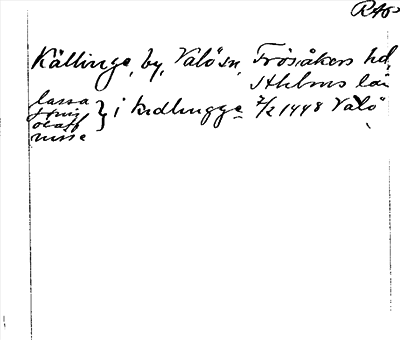 RAP
Källinge, by, Valö sn, Frösåkers hd,
Sthlms län
lassa
Jönis
olaff
nisse } i kedhingge 2/2 1448 Valö